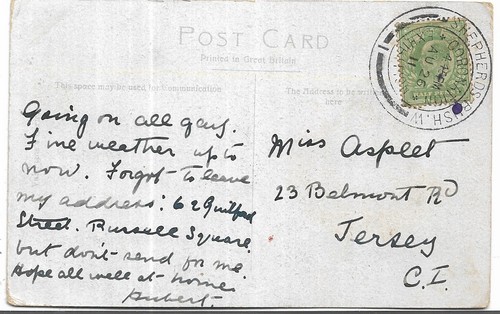 POST CARD
Printed in Great Britain
This space may be used for Communication
The Address to be written here
SHEPHERDS BUSH. W.
AU 26
11
Going on all gay.
Fine weather up to
now. Forgot to leave
my address: 62 Guilford
Street. Russell Square
but don't send for me.
Hope all well at home
Hubert.
Miss Asplet
23 Belmont Rd
Jersey
C.I.